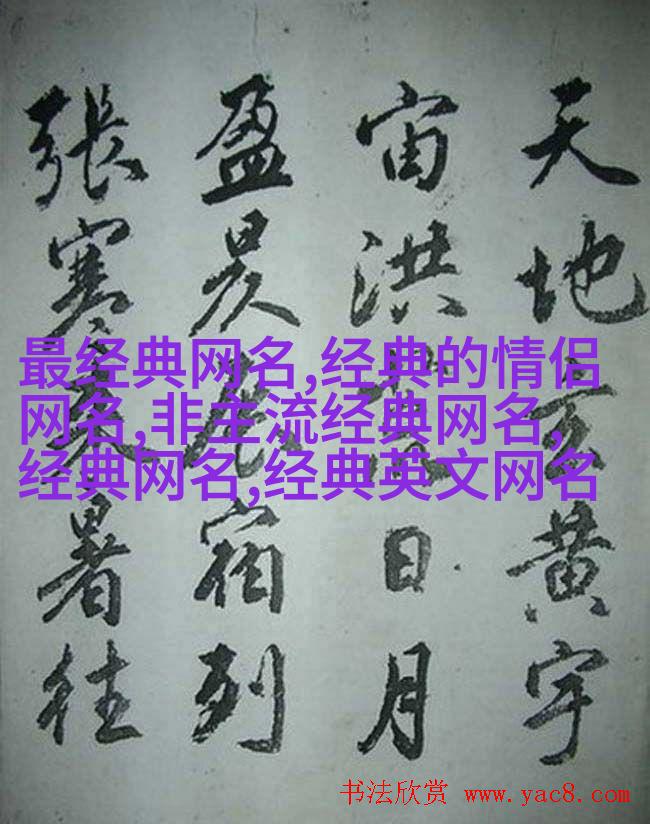 天地玄黄宇
宙洪荒日月
盈昃辰宿列
張寒来暑往
最经典网名,经典的情侣
网名,非主流经典网名,
经典网名,经典英文网名
书法欣赏 www.yac8.com